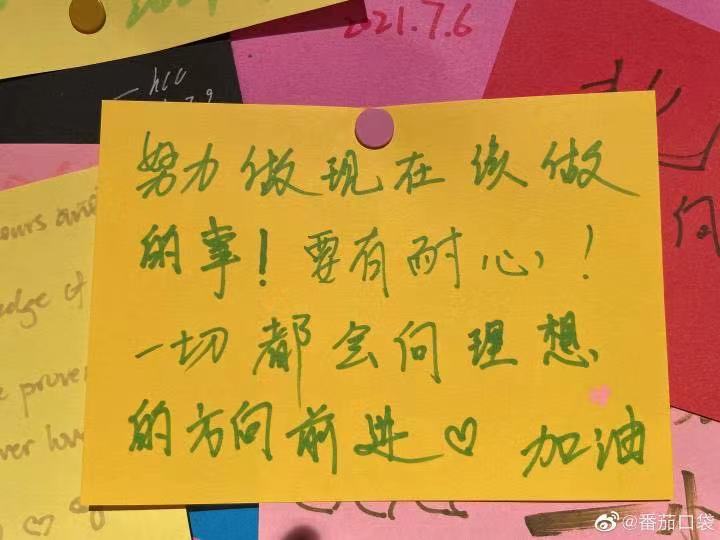 2021.7.6
努力做现在该做
的事！要有耐心！
一切都会向理想
的方向前进♡ 加油
ours and
edge of
prove
ver lov
@番茄口袋